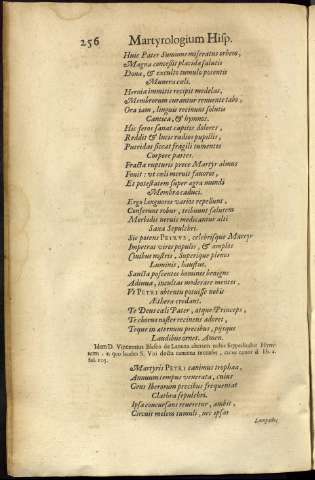 256 Martyrologium Hisp.
Huic Pater Summus miseratus orbem,
Magna concessit placidæ salutis
Dona, & exculto tumulo potentis
Munera cæli.
Hernia immitis recipit medelas,
Membrorum curantur reuulsa tabo,
Ora iam, linguis recinunt solutis
Cantica, & hymnos.
His feros sanat capitis dolores,
Reddit & lucis radios pupillis,
Putridos siccat fragili tumentes
Corpore partes.
Fracta rupturis prece Martyr almus
Fouit: vt cæli meruit fauores,
Et potestatem super agra mundi
Membra caduci.
Ergo languores varios repellunt,
Conferunt robur, tribuunt salutem
Morbidis neruis medicantur alti
Saxa Sepulchri.
Sic potens PETRVS, celebrisque Martyr
Imperat viros populis, & amplos
Ciuibus nostris, Superisque plenos
Luminis, haustus.
Sancta poscentes homines benigns
Adiuua, incultas moderare mentes,
Vt PETRI obtentu potuisse nobis
Æthera credant.
Te Deus cæli Pater, atque Princeps,
Te chorus noster recinens adoret,
Teque in æternum precibus, pijsque
Laudibus ornet. Amen.
Idem D. Vincentius Blasco de Lanuza alterum nobis suppeditabat Hym-
num, quo laudes S. Viri docta camena recenset, cuius tenor
fol. 103.
Martyris PETRI canimus trophæa,
Annuum tempus venerata, cuius
Gens Iberorum precibus frequentat
Clathra sepulchri.
Ipsa concursans reueretur, ambit,
Circuit molem tumuli, nec ipsas
Lampades